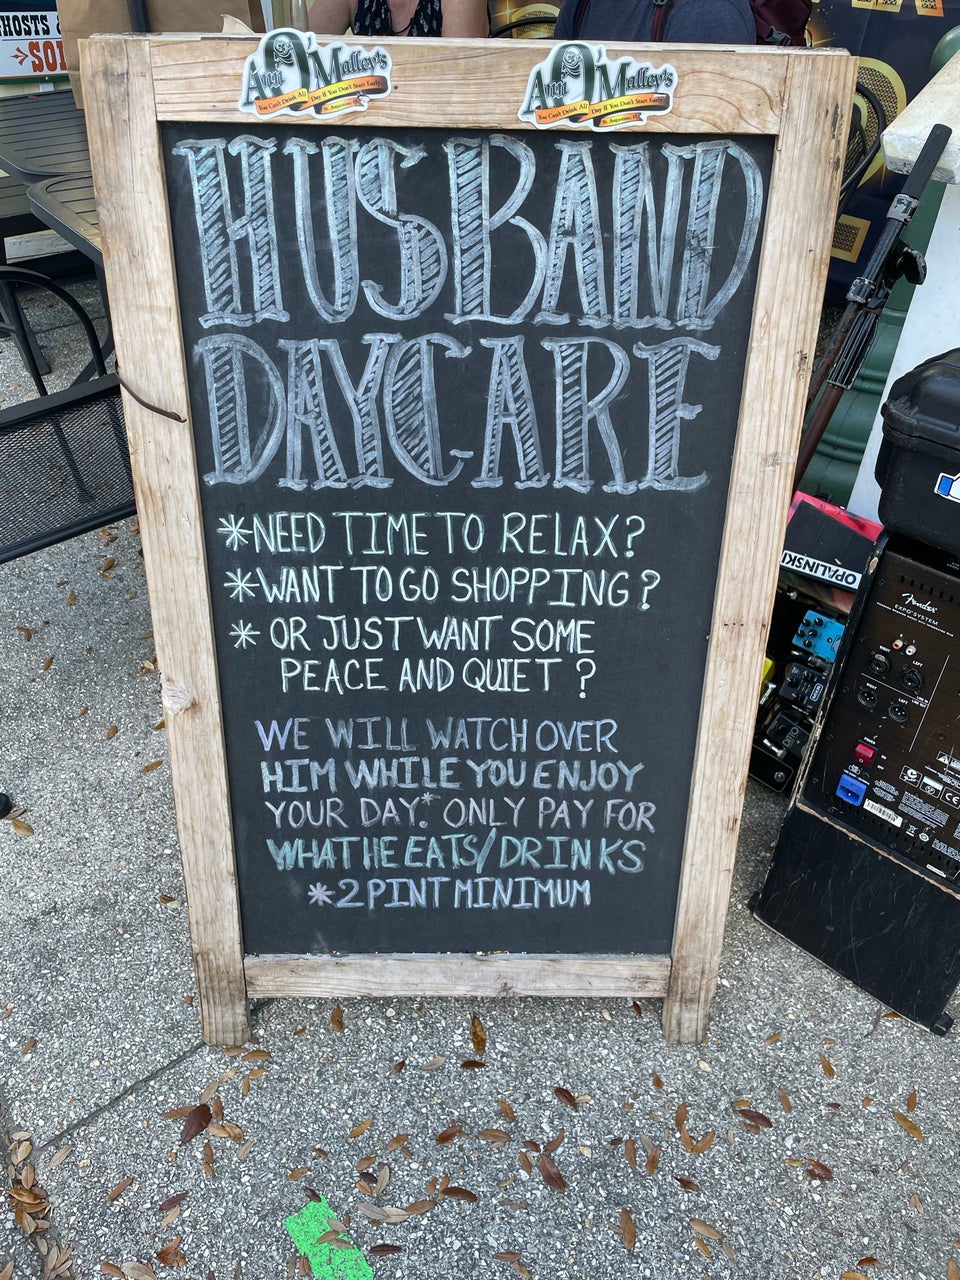 GHOSTS &
SO
Ann O'Malley's
You Can't Drink All Day If You Don't Start Early
St. Augustine, FL
Ann O'Malley's
You Can't Drink All Day If You Don't Start Early
St. Augustine, FL
HUSBAND
DAYCARE
*NEED TIME TO RELAX?
*WANT TO GO SHOPPING?
* OR JUST WANT SOME
PEACE AND QUIET?
WE WILL WATCH OVER
HIM WHILE YOU ENJOY
YOUR DAY.* ONLY PAY FOR
WHAT HE EATS/DRINKS
*2 PINT MINIMUM
OPALINSKI
Fender
EXPO SYSTEM
RIGHT
LEFT
RIGHT
LEFT
DITTO